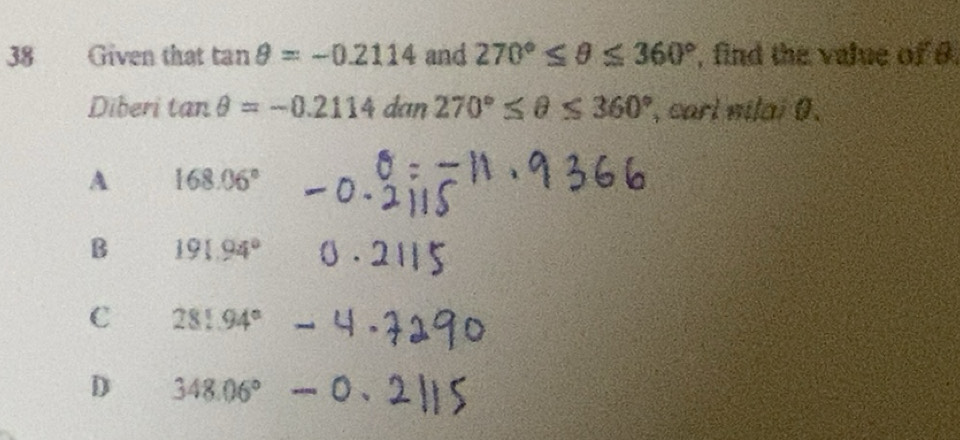 38 Given that tan θ = −0.2114 and 270° ≤ θ ≤ 360°, find the value of θ.
Diberi tan θ = −0.2114 dan 270° ≤ θ ≤ 360°, cari nilai θ.
θ = −11.9366
A 168.06° −0.2115
B 191.94° 0.2115
C 281.94° −4.7290
D 348.06° −0.2115